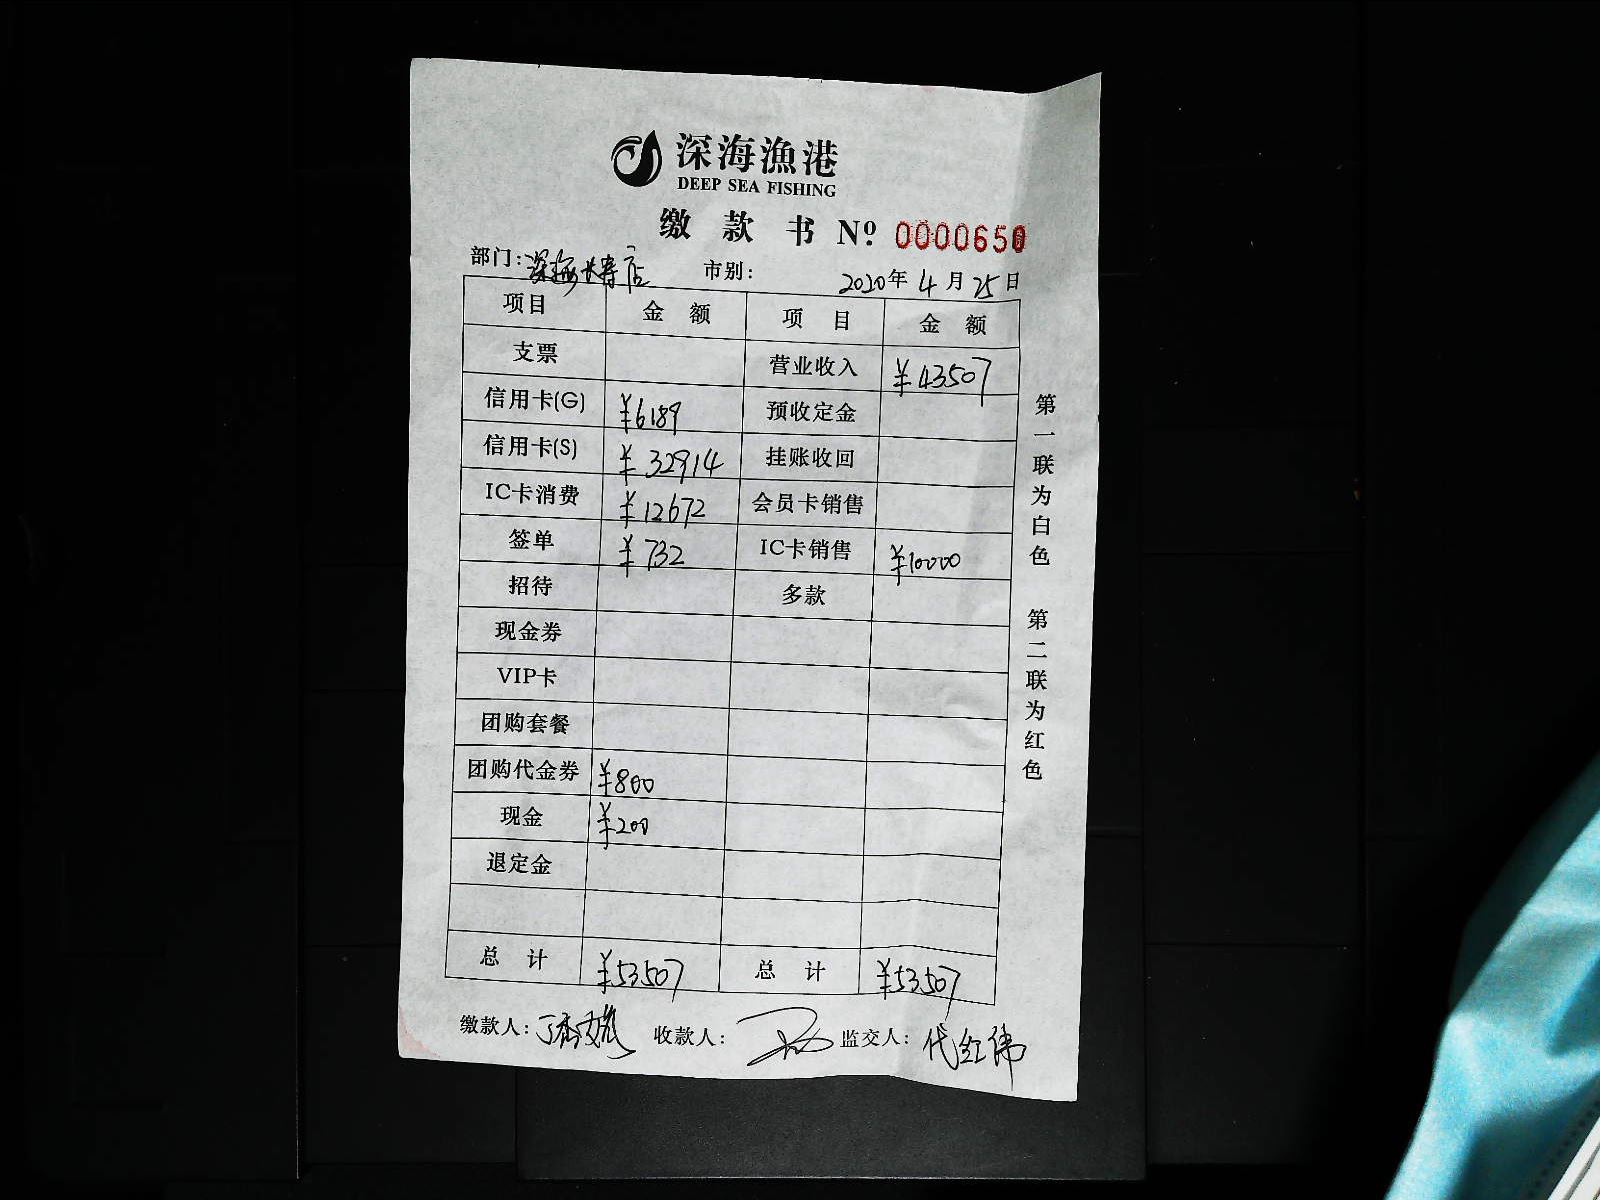 深海漁港
DEEP SEA FISHING
缴款书 Nº: 0000650
部门: 深海长寿店 市别: 2020年4月25日
项目 金额 项目 金额
支票 营业收入 ¥43507
信用卡(G) ¥6189 预收定金
信用卡(S) ¥32914 挂账收回
IC卡消费 ¥12672 会员卡销售
签单 ¥732 IC卡销售 ¥10000
招待 多款
现金券
VIP卡
团购套餐
团购代金券 ¥800
现金 ¥200
退定金
总计 ¥53507 总计 ¥53507
缴款人: 收款人: 监交人: 代红伟
第一联为白色 第二联为红色